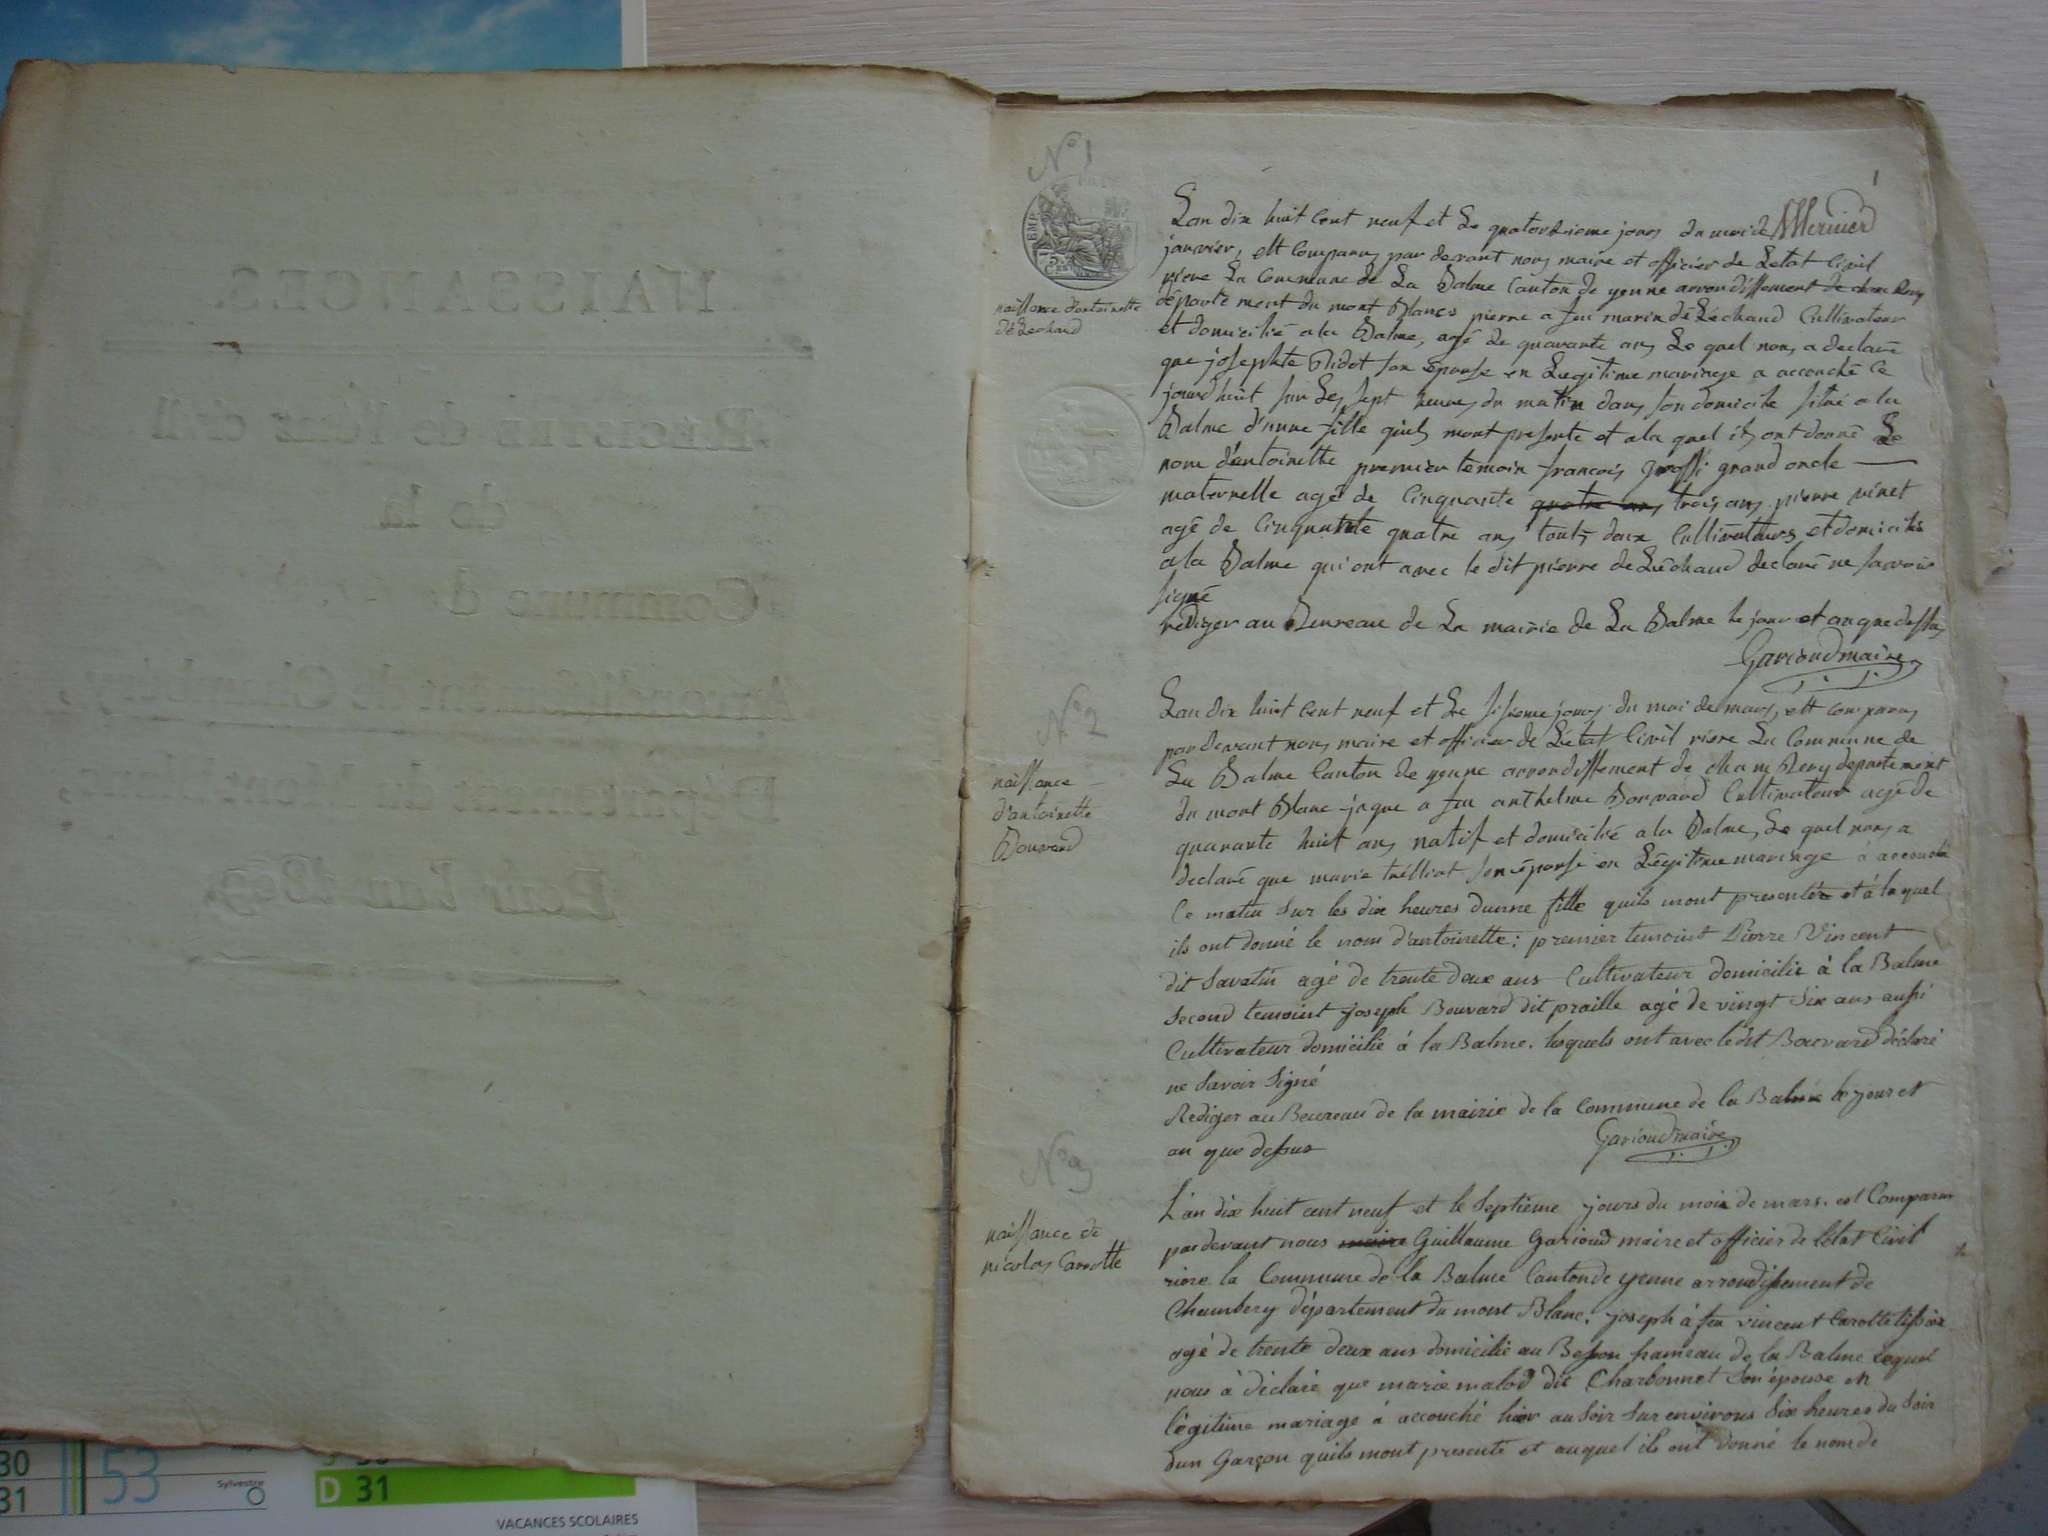 NAISSANCES.
Registre de l'état civil
de la
Commune d
Arrondissement de Chambéry,
Département du Mont-blanc,
Pour l'an 1809.
N° 1
1
EMP
75
naissance d'antoinette
déLéchaud
Lan dix huit Cent neuf et Le quatorzieme jours du mois de
janvier, est Comparus par devant nous maire et officier de Letat Civil
riere La Commune de La Balme Canton de yenne arrondissement de chambery
département du mont Blancs pierre a feu marin déLéchaud Cultivateur
et domicilié a la Balme, agé de quarante ans Le quel nous a declaré
que josephte Ridet son épouse en Legitime mariage a accouché Ce
jourdhuit sur Les sept heures du matin dans son domicile situé a la
Balme d'unne fille quils mont presente et a la quel ils ont donné Le
nom d'entoinette premier temoin francois grossi grand oncle
maternelle agé de Cinquante quatre ans trois ans pierre vinet
agé de Cinquante quatre ans touts deux Cultivateurs et domiciliés
a la Balme qui ont avec le dit pierre de Léchaud declaré ne savoir
signé
rediger au Beureau de La mairie de La Balme le jour et an que dessus
Garioud maire
N° 2
naissance
d'antoinette
Bouvard
Lan dix huit Cent neuf et Le sisieme jours du moi de mars, est comparus
par devant nous maire et officier de Létat Civil riere La Commune de
La Balme Canton de yenne arrondissement de chambery departement
du mont Blanc jaque a feu anthelme Bouvard Cultivateur agé de
quarante huit ans natif et domicilié a la Balme, Le quel nous a
declaré que marie trélliat son épouse en Légitime mariage à accouché
Ce matin sur les dix heures dunne fille quils mont presentée et à la quel
ils ont donné le nom d'antoinette; premier temoint Pierre Vincent
dit Savatin agé de trente deux ans Cultivateur domicilie à la Balme
Second temoint joseph Bouvard dit praille agé de vingt Six ans aussi
Cultivateur domicilié à la Balme. lesquels ont avec ledit Bouvard déclaré
ne Savoir Signé
Rediger au Beureau de la mairie de la Commune de la Balme le jour et
an que dessus
Garioud maire
N° 3
naissance de
nicolas Carrotte
L'an dix huit cent neuf et le Septieme jours du mois de mars. est Comparus
par devant nous maire Guillaume Garioud maire et officier de létat Civil
riere la Commune de la Balme Canton de yenne arrondissement de
Chambery département du mont Blanc; joseph à feu vincent Carotte tissier
agé de trente deux ans domicilié au Besson hameau de la Balme lequel
nous à déclaré que marie malod dit Charbonnet Son épouse en
légitime mariage à accouché hier au Soir Sur environs Six heures du Soir
dun Garçon quils mont presenté et auquel ils ont donné le nom de
30
31
53
Sylvestre
S 30
D 31
VACANCES SCOLAIRES